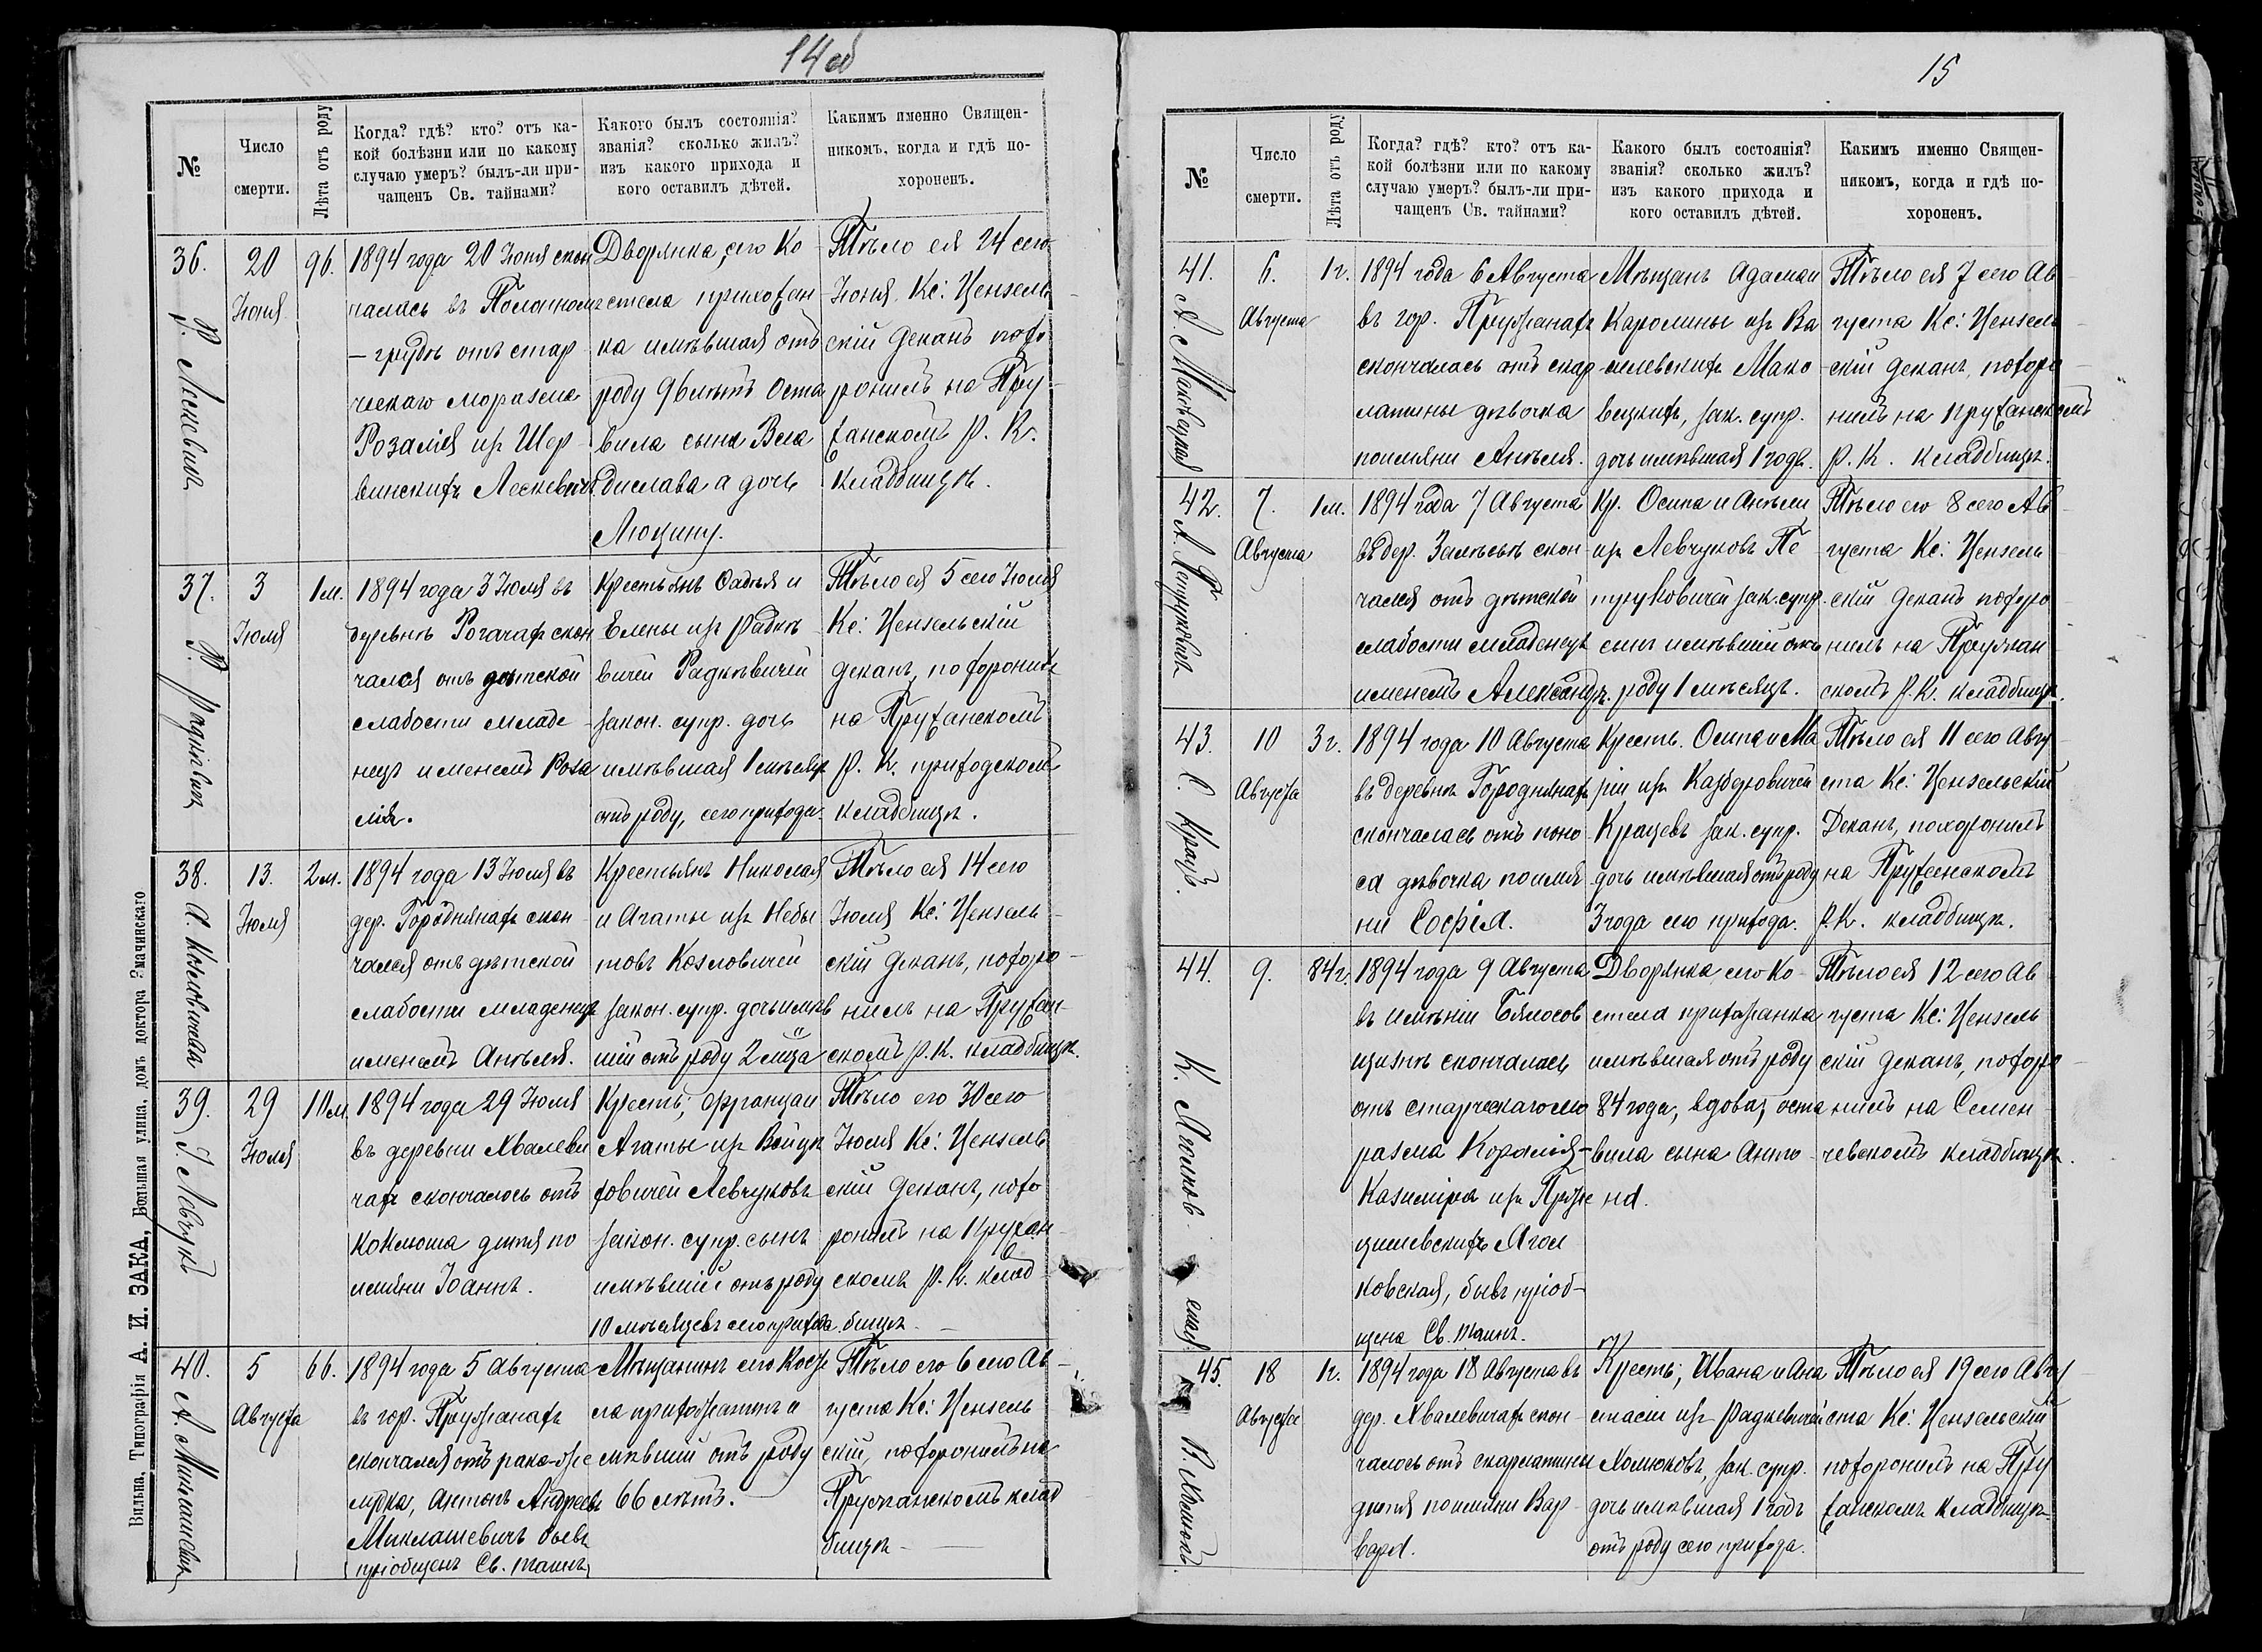 14 об
№
Число
смерти.
Лѣта отъ роду
Когда? гдѣ? кто? отъ ка-
кой болѣзни или по какому
случаю умеръ? былъ-ли при-
чащенъ Св. тайнами?
Какого былъ состоянія?
званія? сколько жилъ?
изъ какого прихода и
кого оставилъ дѣтей.
Какимъ именно Священ-
никомъ, когда и гдѣ по-
хороненъ.
36.
Р. Лескевичъ
20
Іюня
96.
1894 года 20 Іюня скон
чалась въ Полонном
– грудѣ отъ стар
ческаго моразма
Розалія изъ Шер
винскихъ Лескевичъ
Дворянка, сего Ко
стела прихожан
ка имѣвшая отъ
роду 96 лѣтъ Оста
вила сына Вла
дислава а дочь
Люцину.
Тѣло ея 24 сего
Іюня Кс: Цензель
скій деканъ похо
ронилъ на Пру-
жанскомъ Р. К.
кладбищѣ.
37.
Р. Радкѣвичъ
3
Іюля
1 м.
1894 года 3 Іюля въ
деревнѣ Рогачахъ скон
чался отъ дѣтской
слабости младе
нецъ именемъ Роза
лія.
Крестьянъ Фадѣя и
Елены изъ Радкѣ
вичей Радкѣвичей
закон. супр. дочь
имѣвшая 1 мѣсяцъ
отъ роду, сего прихода.
Тѣло ея 5 сего Іюля
Кс: Цензельскій
деканъ, похоронилъ
на Пружанскомъ
Р. К. приходскомъ
кладбищѣ.
38.
А. Козловичъ
13.
Іюля
2 м.
1894 года 13 Іюля въ
дер. Городнянахъ скон
чался отъ дѣтской
слабости младенецъ
именемъ Анѣля.
Крестьянъ Николая
и Агаты изъ Небы
товъ Козловичей
закон. супр. дочь имѣв
шій отъ роду 2 м-ца
Тѣло ея 14 сего
Іюля Кс: Цензель
скій деканъ, похоро-
нилъ на Пружан-
скомъ Р. К. кладбищѣ.
39.
І. Левчукъ
29
Іюля
10 м.
1894 года 29 Іюля
въ деревни Хвалеви
чахъ скончалось отъ
коклюша дитя по
имяни Іоаннъ.
Крестьь; Францаи
Агаты изъ Войцѣ
ховичей Левчуковъ
закон. супр. сынъ
имѣвшій отъ роду
10 мѣсяцевъ сего прихода
Тѣло его 30 сего
Іюля Кс: Цензель
скій деканъ, похо
ронилъ на Пружан
скомъ Р. К. клад
бищѣ.
40.
А. Миклашевичъ
5
Августа
66.
1894 года 5 Августа
въ гор. Пружанахъ
скончался отъ рака-же
лудка, Антонъ Андреевъ
Миклашевичъ бывъ
пріобщенъ Св. таинъ
Мѣщанинъ сего Косте
ла прихожанинъ и
мѣвшій отъ роду
66 лѣтъ.
Тѣло его 6 сего Ав
густа Кс: Цензель
скій, похоронилъ на
Пружанскомъ клад
бищѣ
Вильна, Типографія А. И. ЗАКА, Большая улица, домъ доктора Змачинскаго
15
№
Число
смерти.
Лѣта отъ роду
Когда? гдѣ? кто? отъ ка-
кой болѣзни или по какому
случаю умеръ? былъ-ли при-
чащенъ Св. тайнами?
Какого былъ состоянія?
званія? сколько жилъ?
изъ какого прихода и
кого оставилъ дѣтей.
Какимъ именно Священ-
никомъ, когда и гдѣ по-
хороненъ.
41.
А. Маковецкая
6.
Августа
1 г.
1894 года 6 Августа
въ гор. Пружанахъ
скончалась отъ скар
латины дѣвочка
поимяни Анѣля.
Мѣщанъ Адама и
Каролины изъ Ва
силевскихъ Мако
вецкихъ, зак. супр.
дочь имѣвшая 1 годъ.
Тѣло ея 7 сего Ав
густа Кс: Цензель
скій деканъ, похоро
нилъ на Пружанскомъ
Р. К. кладбищѣ.
42.
А. Петруковичъ
7.
Августа
1 м.
1894 года 7 Августа
въ дер. Залѣсьѣ скон
чался отъ дѣтской
слабости младенецъ
именемъ Александръ.
Кр. Осипа и Анѣли
изъ Левчуковъ Пе
труковичей зак. супр.
сынъ имѣвшій отъ
роду 1 мѣсяцъ.
Тѣло его 8 сего Ав
густа Кс: Цензель
скій деканъ похоро
нилъ на Пружан
скомъ Р. К. кладбищѣ.
43.
С. Крацъ.
10
Августа
3 г.
1894 года 10 Августа
въ деревнѣ Городнянахъ
скончалась отъ поно
са дѣвочка поимя
ни Софія.
Кресть. Осипа и Ма
ріи изъ Казберовичей
Крацевъ зак. супр.
дочь имѣвшая отъ роду
3 года сего прихода.
Тѣло ея 11 сего Авгу
ста Кс: Цензельскій
Деканъ, похоронилъ
на Пружанскомъ
Р. К. кладбищѣ.
44.
К. Яголков
ская
9.
84 г.
1894 года 9 Августа
въ имѣніи Бѣлосов
щизнѣ скончалась
отъ старческаго мо
разма Королія-
Казимира изъ Пруше
цишевскихъ Ягол
ковская, бывъ пріоб-
щена Св. таинъ.
Дворянка, сего Ко
стела прихожанка
имѣвшая отъ роду
84 года, вдова, оста
вила сына Анто
на.
Тѣло ея 12 сего Ав
густа Кс: Цензель
скій деканъ, похоро
нилъ на Семен
чевскомъ кладбищѣ.
45.
В. Хомюкъ
18
Августа
1 г.
1894 года 18 Августа въ
дер. Хвалевичахъ скон
чалось отъ скарлатины
дитя поимяни Вар
вара.
Кресть; Ивана и Ана
стасіи изъ Радкевичей
Хомюковъ, зак. супр.
дочь имѣвшая 1 годъ
отъ роду сего прихода.
Тѣло ея 19 сего Авгу
ста Кс: Цензельскій
похоронилъ на Пру
жанскомъ кладбищѣ.